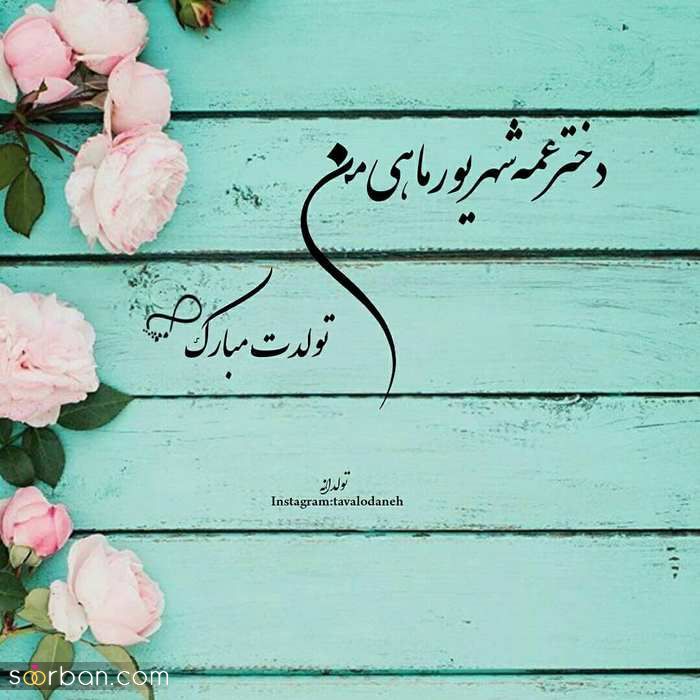 دختر عمه شهریور ماهی من
تولدت مبارک
تولدانه
Instagram:tavalodaneh
soorban.com